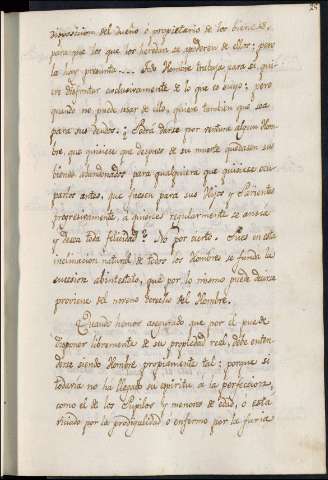 disposicion del dueño ó propietario de los bienes,
para que los que los heredan se apoderen de ellos; pero
la hay presunta. Todo Hombre trabaja para sí, quie-
re disfrutar exclusivamente de lo que es suyo: pero
quando no puede usar de ello, quiere tambien que sea
para sus deudos. ¿Podra darse por ventura algun Hom-
bre, que quisiese que despues de su muerte quedasen sus
bienes abandonados para qualquiera que quisiese ocu-
parlos antes, que fuesen para sus Hijos y Parientes
progresivamente, a quienes regularmente se ama
y desea toda felicidad? No por cierto. Pues en esta
inclinacion natural de todos los Hombres se funda la
succesion abintestato, que por lo mismo puede decirse
proviene del mismo derecho del Hombre.
Quando hemos asegurado que por el puede
disponer libremente de su propiedad real, debe enten-
derse siendo Hombre propiamente tal; porque si
todavia no ha llegado su espiritu á la perfeccion,
como el de los Pupilos y menores de edad, ó está
viciado por la prodigalidad ó enfermo por la furia